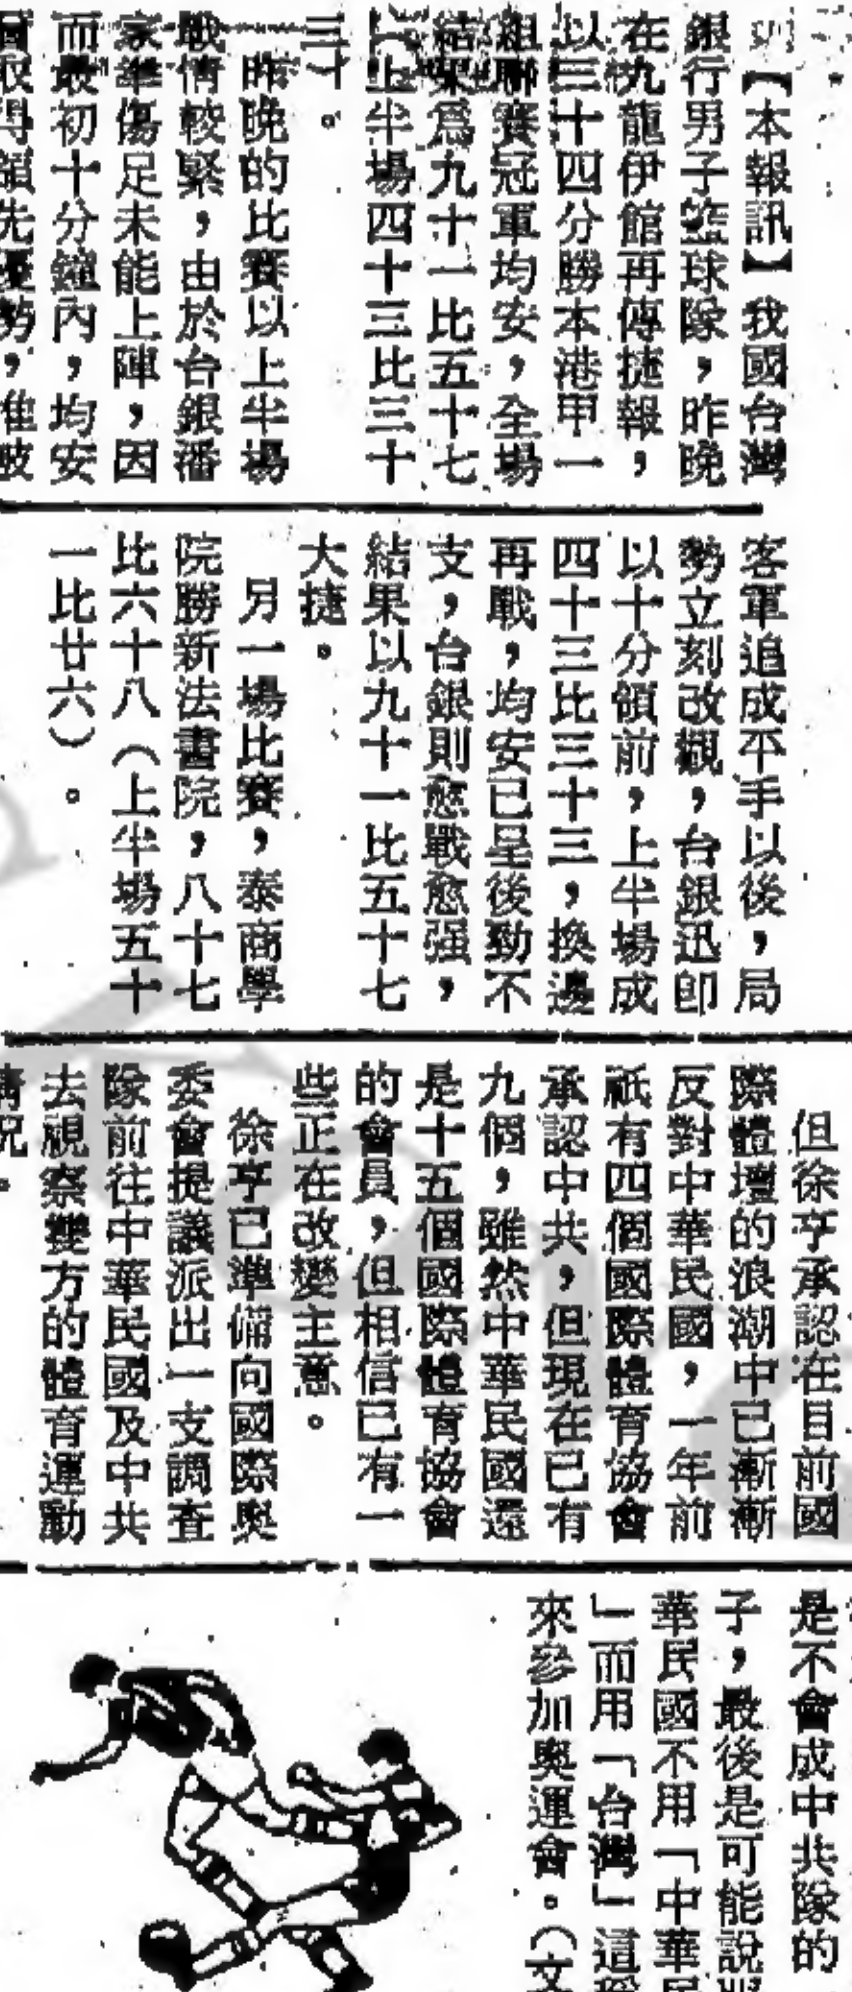 【本報訊】我國台灣
銀行男子籃球隊，昨晚
在九龍伊館再傳捷報，
以三十四分勝本港甲一
組聯賽冠軍均安，全場
結果爲九十一比五十七
（上半場四十三比三十
三）。
昨晚的比賽以上半場
戰情較緊，由於台銀潘
家華傷足未能上陣，因
而最初十分鐘內，均安
取得領先優勢，惟被
客軍追成平手以後，局
勢立刻改觀，台銀迅卽
以十分領前，上半場成
四十三比三十三，換邊
再戰，均安已呈後勁不
支，台銀則愈戰愈强，
結果以九十一比五十七
大捷。
另一場比賽，泰商學
院勝新法書院，八十七
比六十八（上半場五十
一比廿六）。
但徐亨承認在目前國
際體壇的浪潮中已漸漸
反對中華民國，一年前
祇有四個國際體育協會
承認中共，但現在已有
九個，雖然中華民國還
是十五個國際體育協會
的會員，但相信已有一
些正在改變主意。
徐亨已準備向國際奧
委會提議派出一支調查
隊前往中華民國及中共
去視察雙方的體育運動
情況。
是不會成中共隊的
子，最後是可能說
華民國不用「中華民
」而用「台灣」這
來參加奧運會。（文